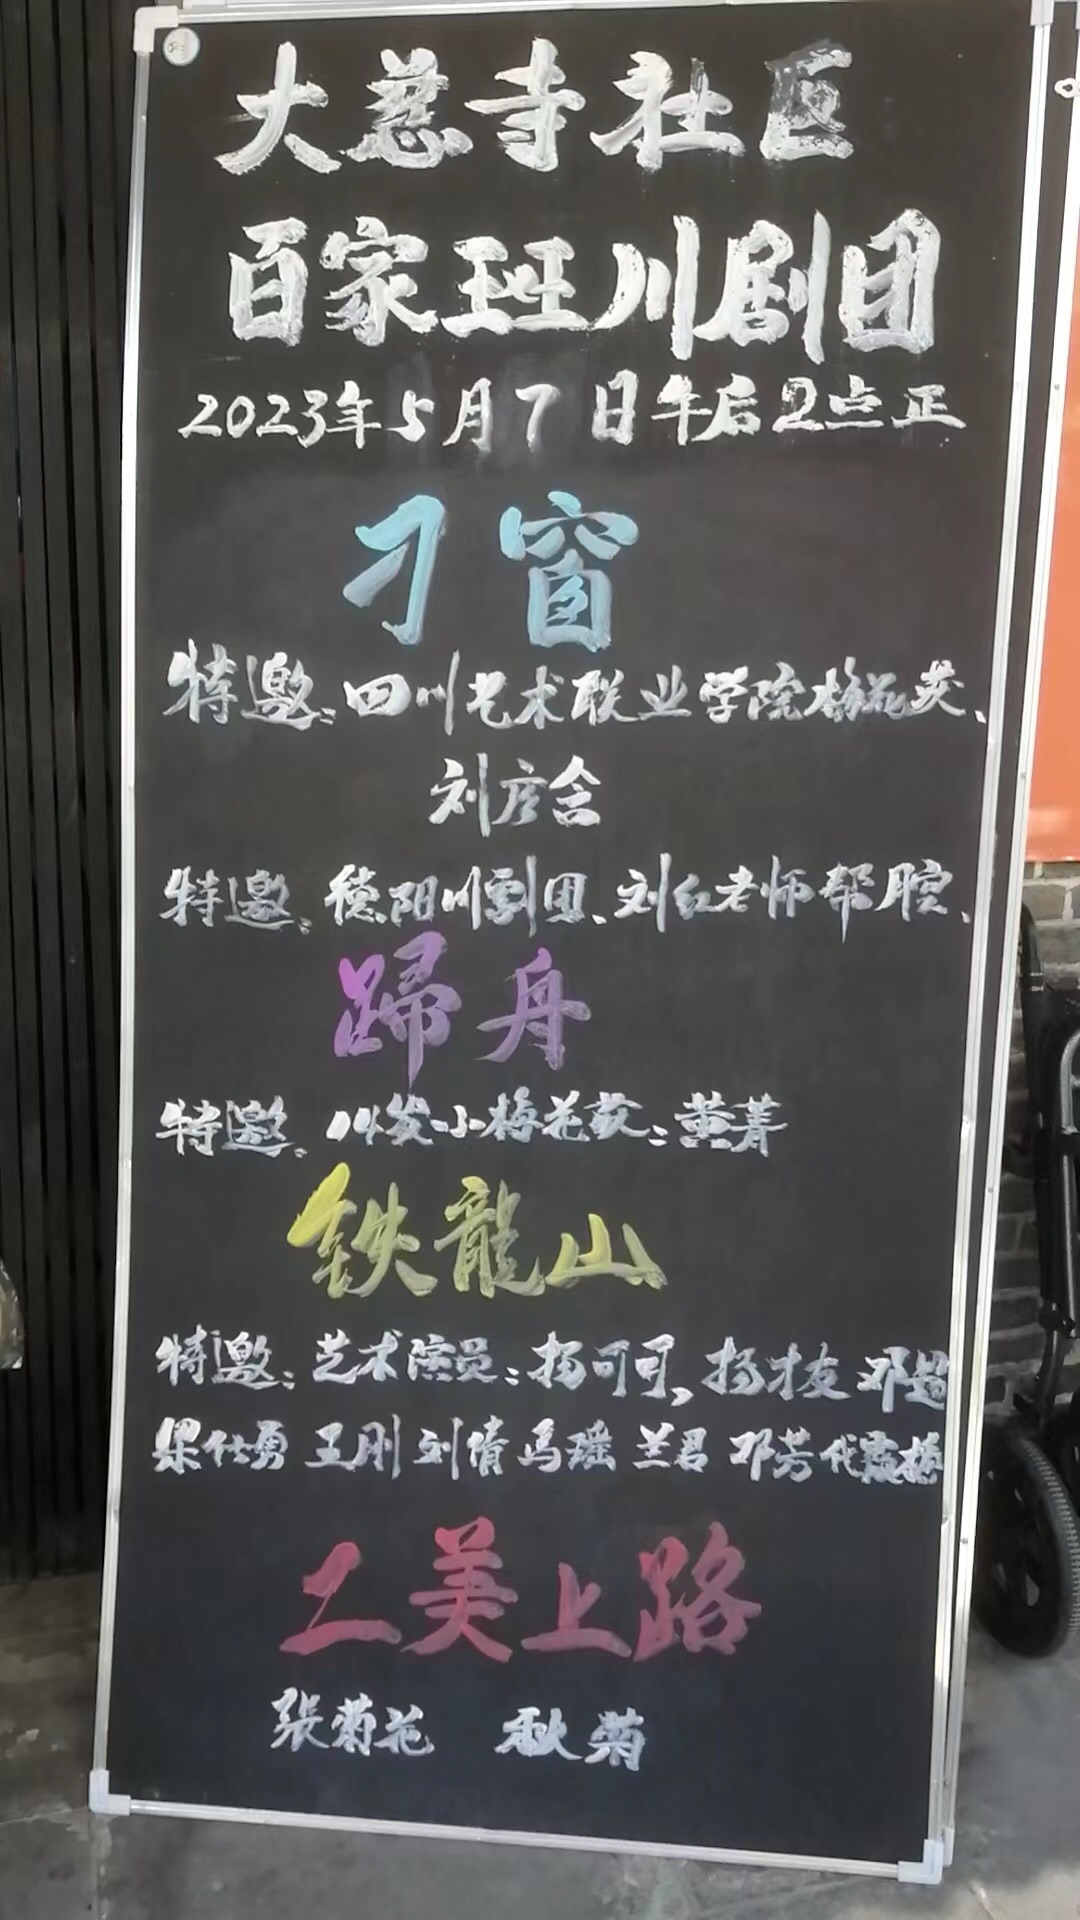 大慈寺社区
百家班川剧团
2023年5月7日午后2点正
刁窗
特邀:四川艺术联业学院梅花奖、
刘彦含
特邀、德阳川剧团、刘红老师帮腔、
踢舟
特邀、小梅花奖:黄菁
铁龍山
特邀:艺术演员:扬可可,扬才友 邓超
梁仕勇 王刚 刘倩 马瑶 兰君 邓芳 代霞
二美上路
张菊花 秋菊